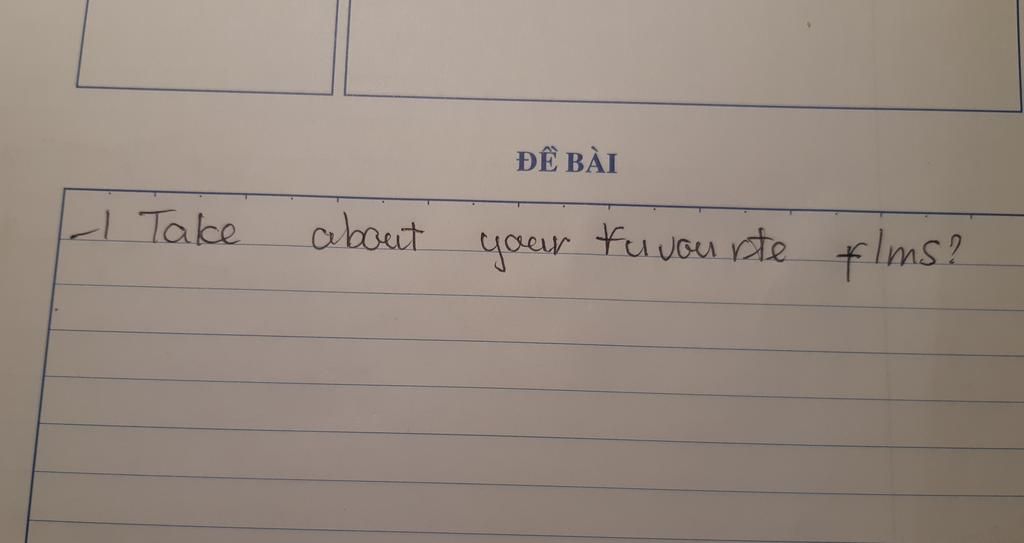 ĐỀ BÀI
-1 Take about your favourite flms?